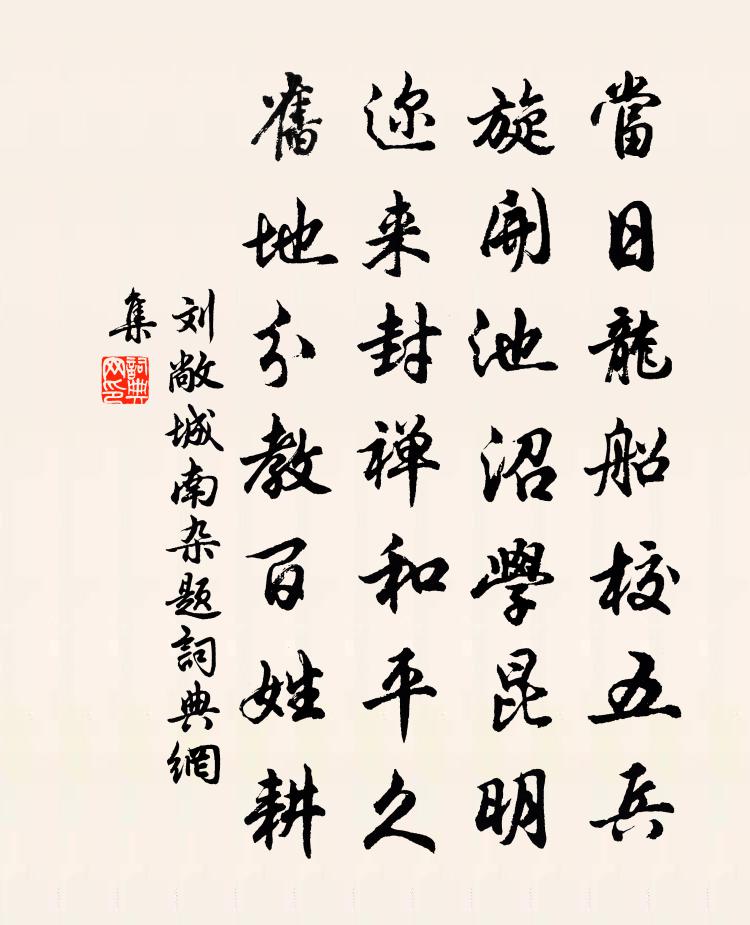 當日龍船校五兵
旋開池沼學昆明
迩来封禅和平久
舊地分教百姓耕
刘敞城南杂题詞典網
集
詞典網印